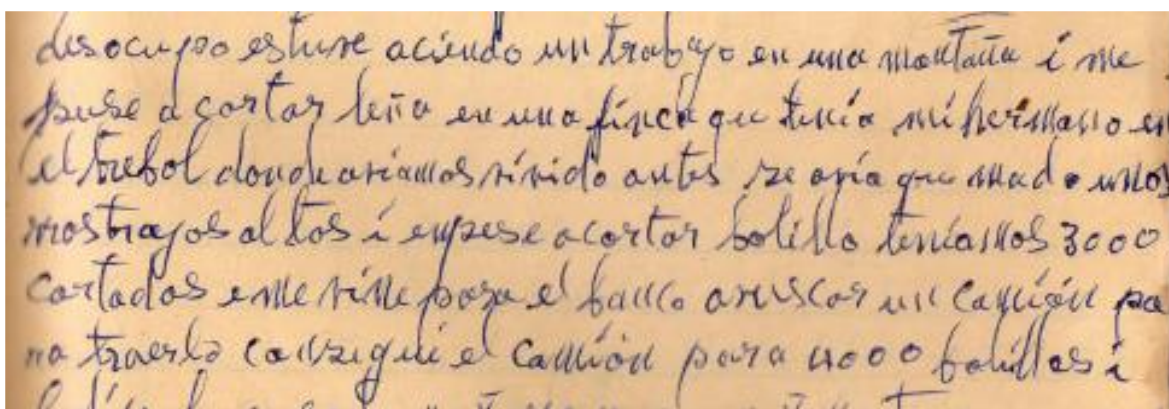 desocupo estuve aciendo un trabajo en una montaña i me
puse a cortar leña en una finca que tenía mi hermano en
el trebol donde aviamos vivido antes se avía quemado unos
rrastrajos altos i enpese a cortar bolillo teníamos 3000
cortados e me vine para el banco a vuscar un camión pa
ra traerlo conzegui el camión para 4000 bolillos i